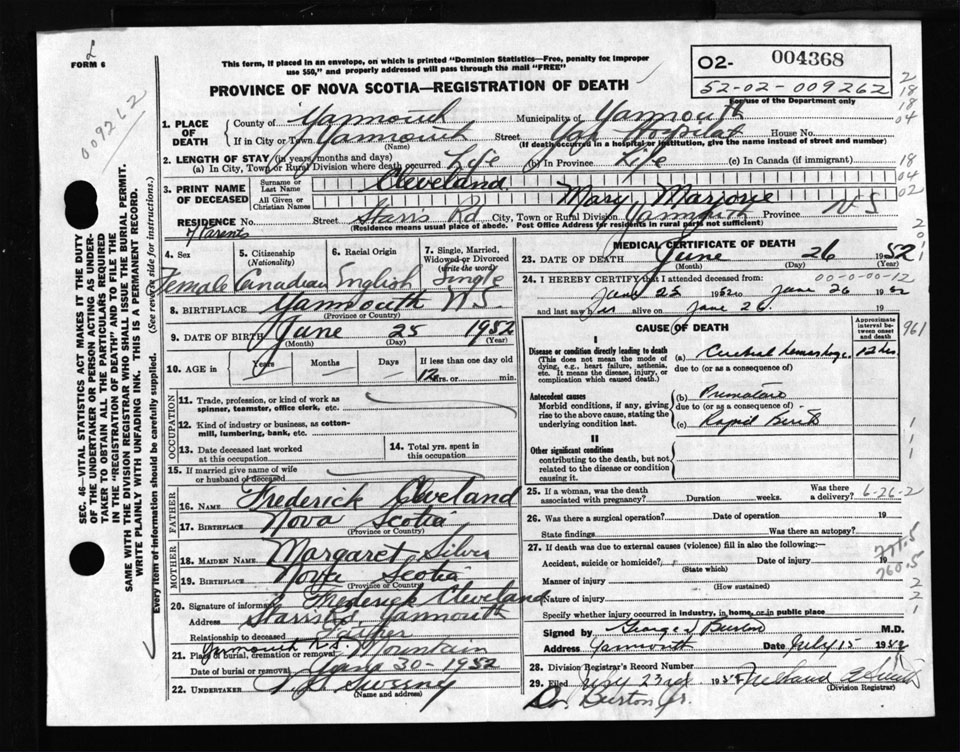 L
FORM 6
This form, if placed in an envelope, on which is printed "Dominion Statistics—Free, penalty for improper
use $50," and properly addressed will pass through the mail "FREE"
02- 004368
52-02-009262
For use of the Department only
009262
PROVINCE OF NOVA SCOTIA—REGISTRATION OF DEATH
1. PLACE OF DEATH
County of Yarmouth Municipality of Yarmouth
If in City or Town Yarmouth Street Yar Hospital House No.
(Name) (If death occurred in a hospital or institution, give the name instead of street and number)
2. LENGTH OF STAY (in years, months and days)
(a) In City, Town or Rural Division where death occurred Life (b) In Province Life (c) In Canada (if immigrant)
3. PRINT NAME OF DECEASED
Surname or Last Name Cleveland
All Given or Christian Names Mary Marjorie
RESIDENCE No. Street Starrs Rd City, Town or Rural Division Yarmouth Province NS
(Residence means usual place of abode. Post Office Address for residents in rural parts not sufficient)
Parents
4. Sex 5. Citizenship (Nationality) 6. Racial Origin 7. Single, Married, Widowed or Divorced (write the word)
Female Canadian English Single
8. BIRTHPLACE Yarmouth N.S.
(Province or Country)
9. DATE OF BIRTH June 25 1952
(Month) (Day) (Year)
10. AGE in Years Months Days If less than one day old
12 hrs. or min.
OCCUPATION
11. Trade, profession, or kind of work as
spinner, teamster, office clerk, etc.
12. Kind of industry or business, as cotton-
mill, lumbering, bank, etc.
13. Date deceased last worked at this occupation 14. Total yrs. spent in this occupation
15. If married give name of wife
or husband of deceased
FATHER
16. NAME Frederick Cleveland
17. BIRTHPLACE Nova Scotia
(Province or Country)
MOTHER
18. MAIDEN NAME Margaret Silver
19. BIRTHPLACE Nova Scotia
(Province or Country)
20. Signature of informant Frederick Cleveland
Address Starrs Rd, Yarmouth
Relationship to deceased Father
21. Place of burial, cremation or removal Yarmouth N.S. Mountain
Date of burial or removal June 30-1952
22. UNDERTAKER Sweeny
(Name and address)
MEDICAL CERTIFICATE OF DEATH
23. DATE OF DEATH June 26 1952
(Month) (Day) (Year)
24. I HEREBY CERTIFY that I attended deceased from: 00-0-00-12
June 25 1952 to June 26 1952
and last saw her alive on June 26 19
CAUSE OF DEATH
Approximate interval between onset and death
I
Disease or condition directly leading to death (a) Cerebral hemorrhage 12 hrs
(This does not mean the mode of dying, e.g., heart failure, asthenia, etc. It means the disease, injury, or complication which caused death.)
due to (or as a consequence of)
Antecedent causes (b) Premature
Morbid conditions, if any, giving rise to the above cause, stating the underlying condition last.
due to (or as a consequence of)
(c) Rapid Birth
II
Other significant conditions
contributing to the death, but not related to the disease or condition causing it.
25. If a woman, was the death associated with pregnancy? Duration weeks. Was there a delivery? 6-26-2
26. Was there a surgical operation? Date of operation 19
State findings Was there an autopsy?
27. If death was due to external causes (violence) fill in also the following:—
Accident, suicide or homicide? Date of injury 19
(State which)
Manner of injury
(How sustained)
Nature of injury
Specify whether injury occurred in industry, in home, or in public place
Signed by George V Burton M.D.
Address Yarmouth Date July 15 1952
28. Division Registrar's Record Number
29. Filed 23rd 195
(Division Registrar)
Dr. Burton Jr.
2
18
18
04
18
04
02
2
0
1
961
1
1
1
760.5
2
2
1
SEC. 46—VITAL STATISTICS ACT MAKES IT THE DUTY
OF THE UNDERTAKER OR PERSON ACTING AS UNDER-
TAKER TO OBTAIN ALL THE PARTICULARS REQUIRED
IN THE "REGISTRATION OF DEATH" AND TO FILE THE
SAME WITH THE DIVISION REGISTRAR WHO SHALL ISSUE THE BURIAL PERMIT.
WRITE PLAINLY WITH UNFADING INK. THIS IS A PERMANENT RECORD.
Every item of information should be carefully supplied. (See reverse side for instructions.)